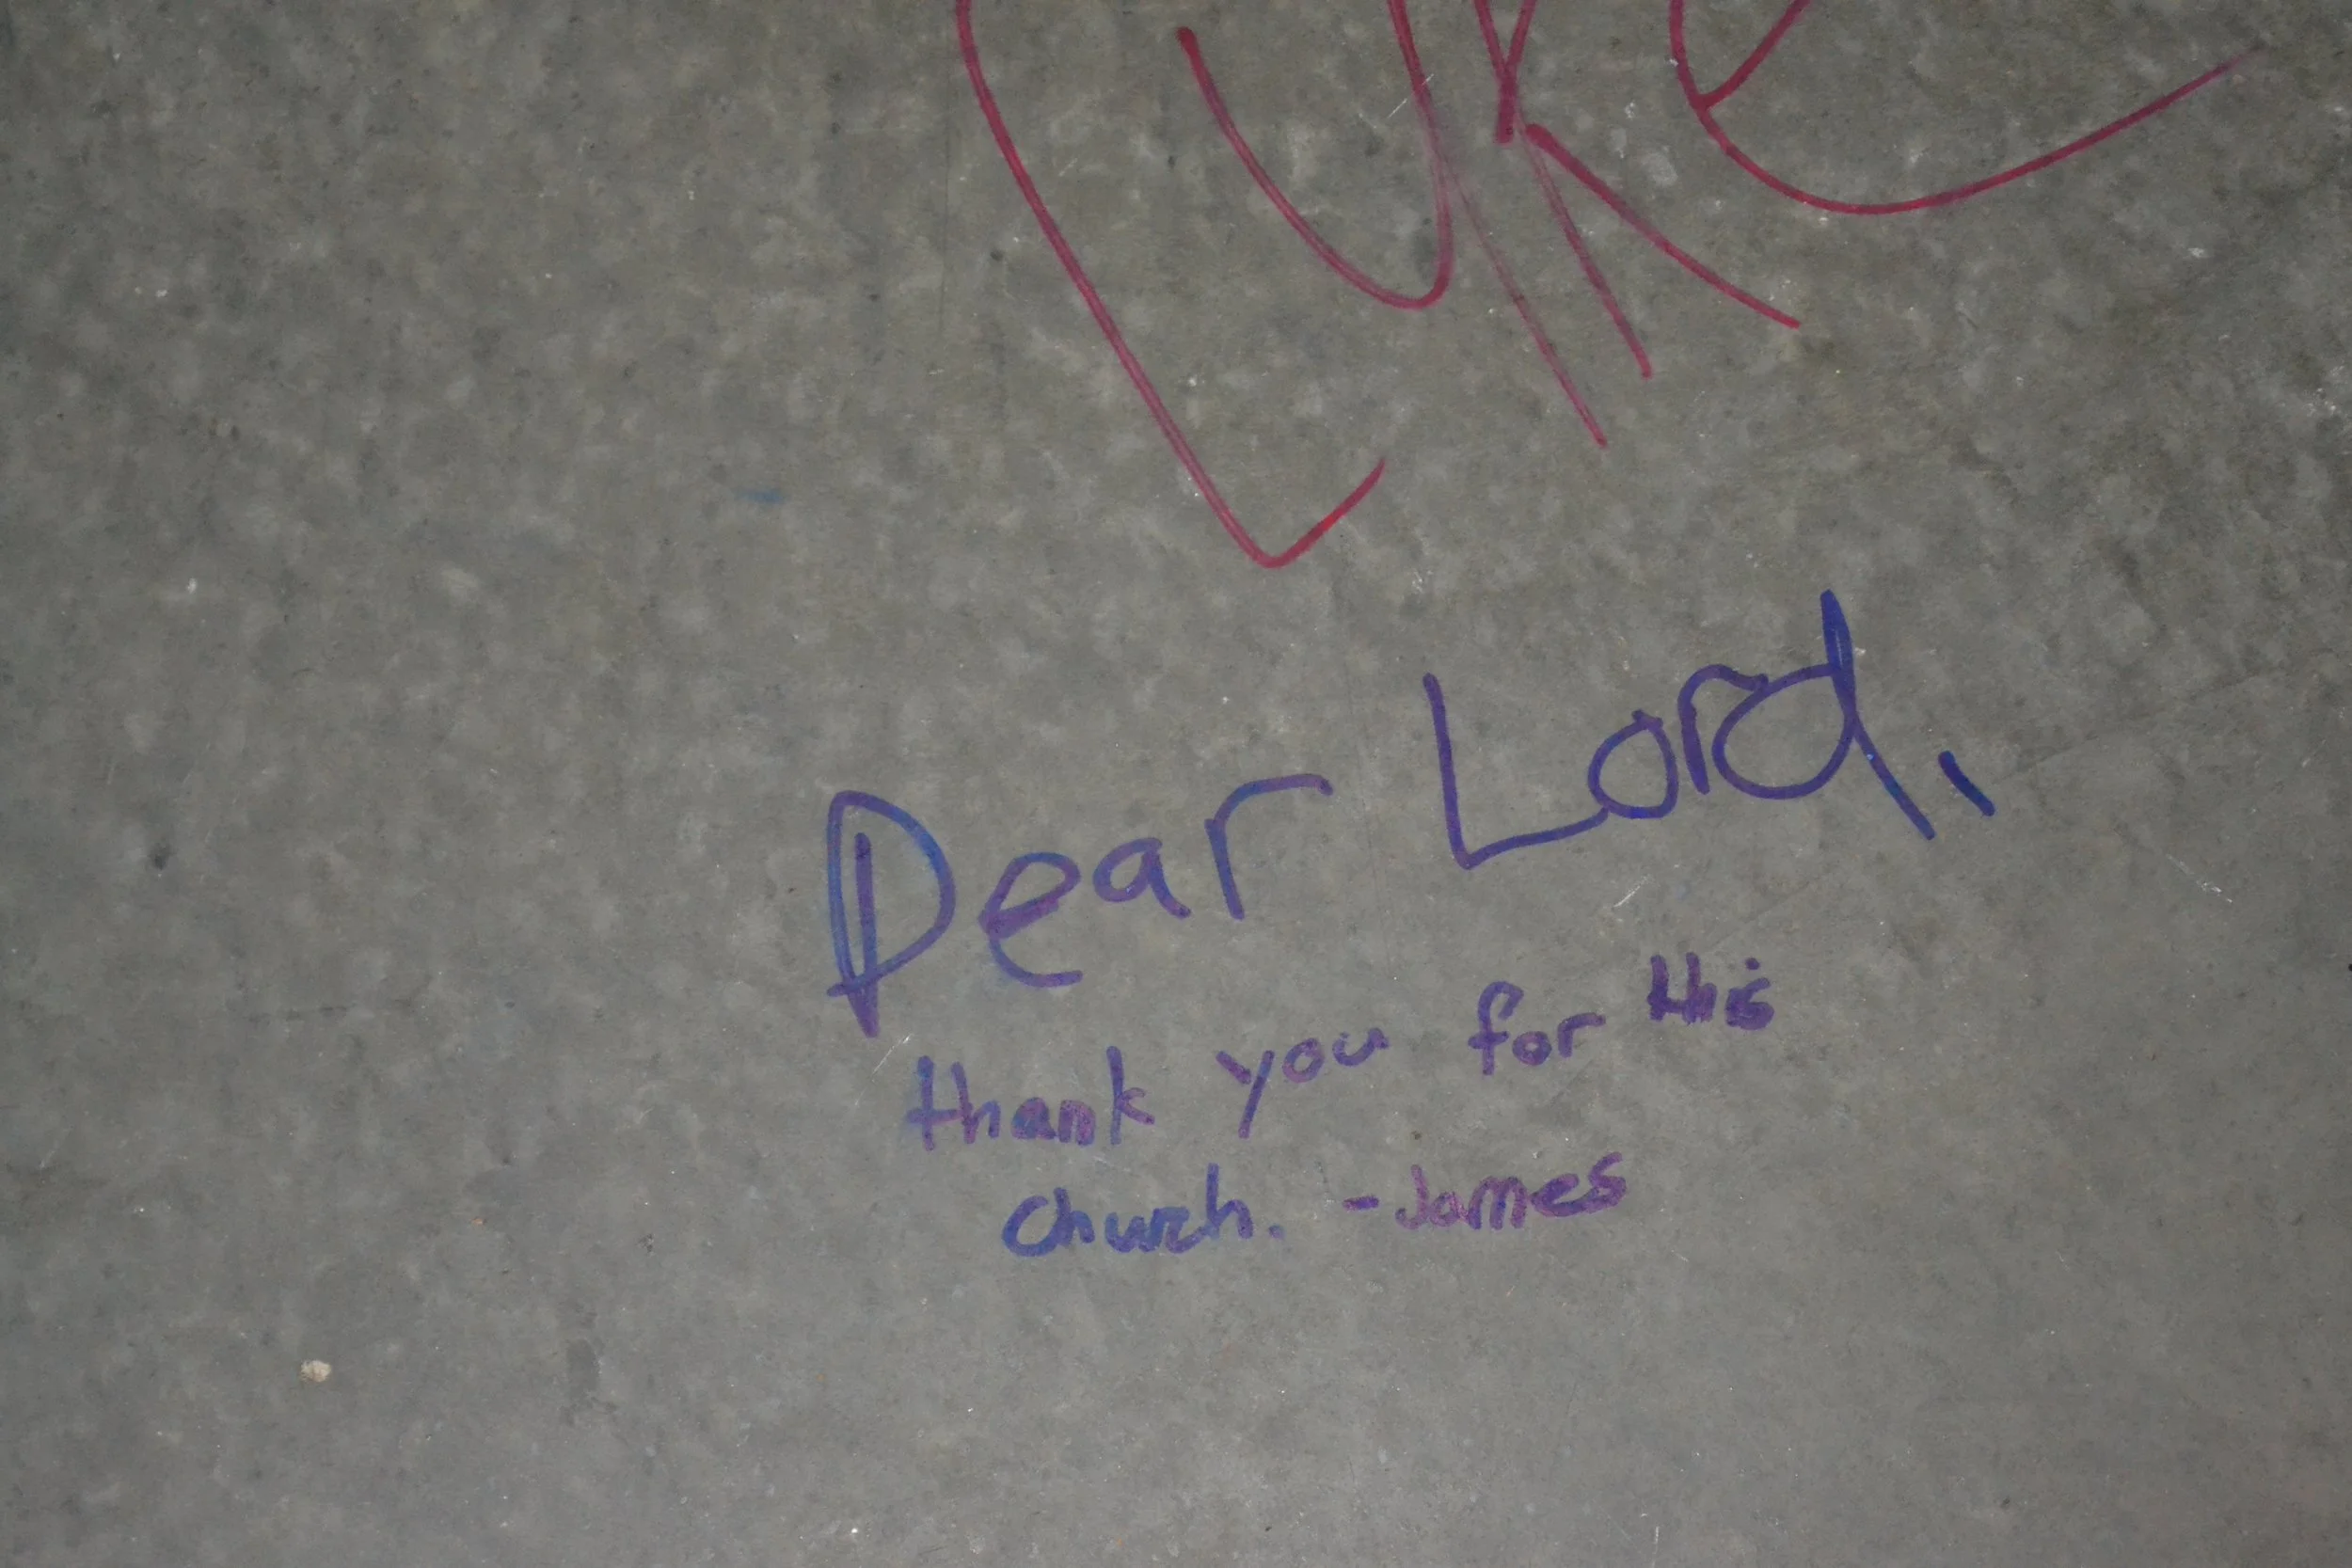 Luke
Dear Lord,
thank you for this
church. -James